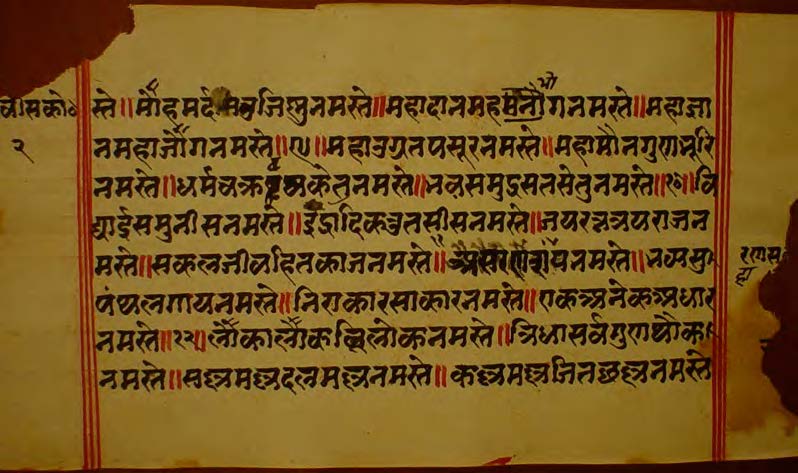 २
स्ते॥मोहमर्द नमस्ते॥महादानमह नमस्ते॥महाज्ञा
नमहाजोगनमस्ते॥९॥महाउग्रतपसूरनमस्ते॥महामौनगुणभूरि
नमस्ते॥धर्मचक्र केतनमस्ते॥भवसमुद्रसतसेतुनमस्ते॥१०॥वि
द्याईसमुनीसनमस्ते॥इंद्रादिकनुतसीसनमस्ते॥जयरत्नत्रयराजन
मस्ते॥सकलजीवहितकाजनमस्ते॥ नमस्ते॥भव्यसु
पंथलगायनमस्ते॥निराकारसाकारनमस्ते॥एकअनेकअधार
नमस्ते॥१२॥लोकालोकविलोकनमस्ते॥त्रिधासर्वगुणथोक
नमस्ते॥सल्लमल्लदलमल्लनमस्ते॥कल्लमल्लजितछल्लनमस्ते
रणस